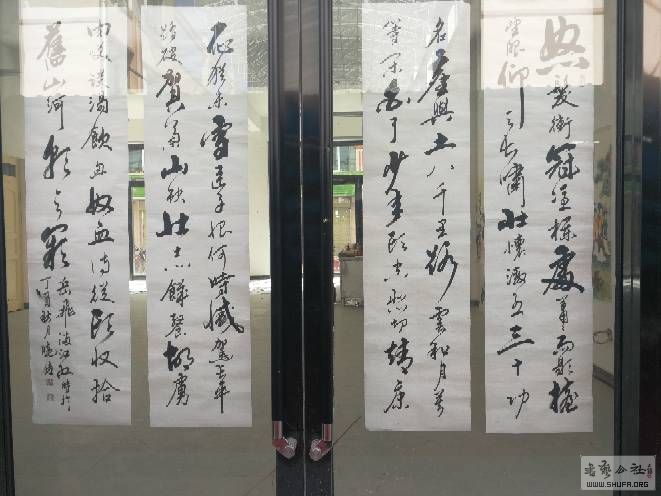 怒髮衝冠憑欄處蕭々雨歇擡
望眼仰天長嘯壯懷激烈三十功
名塵與土八千里路雲和月莫
等閑白了少年頭空悲切靖康
恥猶未雪臣子恨何時滅駕長車
踏破賀蘭山缺壯志飢餐胡虜
肉笑談渴飲匈奴血待從頭收拾
舊山河朝天闕
岳飛滿江紅
丁酉秋月
書藝公社
WWW.SHUFA.ORG